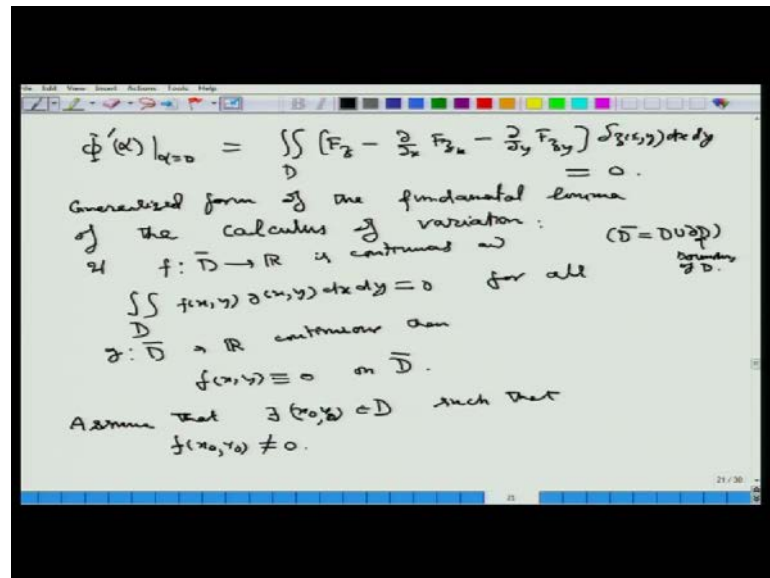 File Edit View Insert Actions Tools Help
Φ'(α)|_{α=0} = ∬_D [F_z - ∂/∂x F_{z_x} - ∂/∂y F_{z_y}] δz(x,y) dx dy
= 0.
Generalized form of the fundamental lemma
of the calculus of variation:
If f: D̄ → ℝ is continuous and (D̄ = D∪∂D)
boundary of D.
∬_D f(x,y) g(x,y) dx dy = 0 for all
g: D̄ → ℝ continuous then
f(x,y) ≡ 0 on D̄.
Assume that ∃ (x₀,y₀) ∈ D such that
f(x₀,y₀) ≠ 0.
21 / 30
21